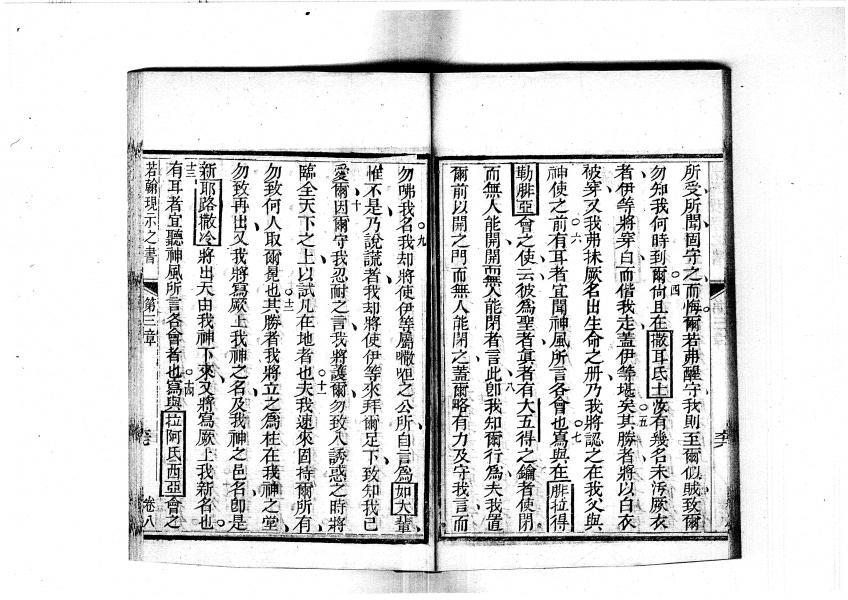 所受所聞固守之而悔爾若弗醒守我則至爾似賊致爾
勿知我何時到爾○四尙且在撒耳氏士汝有幾名未汚厥衣
者伊等將穿白而偕我走蓋伊等堪矣○五其勝者將以白衣
被穿又我弗抹厥名出生命之册乃我將認之在我父與
神使之前○六有耳者宜聞神風所言各會也○七寫與在腓拉得
勒腓亞會之使云彼爲聖者眞者有大五得之鑰者使閉
而無人能開開而無人能閉者言此○八卽我知爾行爲夫我置
爾前以開之門而無人能閉之蓋爾略有力及守我言而
勿咈我名○九我却將使伊等屬㘔呾之公所自言爲如大輩
惟不是乃說謊者我却將使伊等來拜爾足下致知我已
愛爾○十因爾守我忍耐之言我將護爾勿致入誘惑之時將
臨全天下之上以試凡在地者也○十一夫我速來固持爾所有
勿致何人取爾冕也○十二其勝者我將立之爲柱在我神之堂
勿致再出又我將寫厥上我神之名及我神之邑名卽是
新耶路撒冷將出天由我神下來又將寫厥上我新名也
十三有耳者宜聽神風所言各會者也○十四寫與拉阿氐西亞會之
若翰現示之書 第三章 卷八